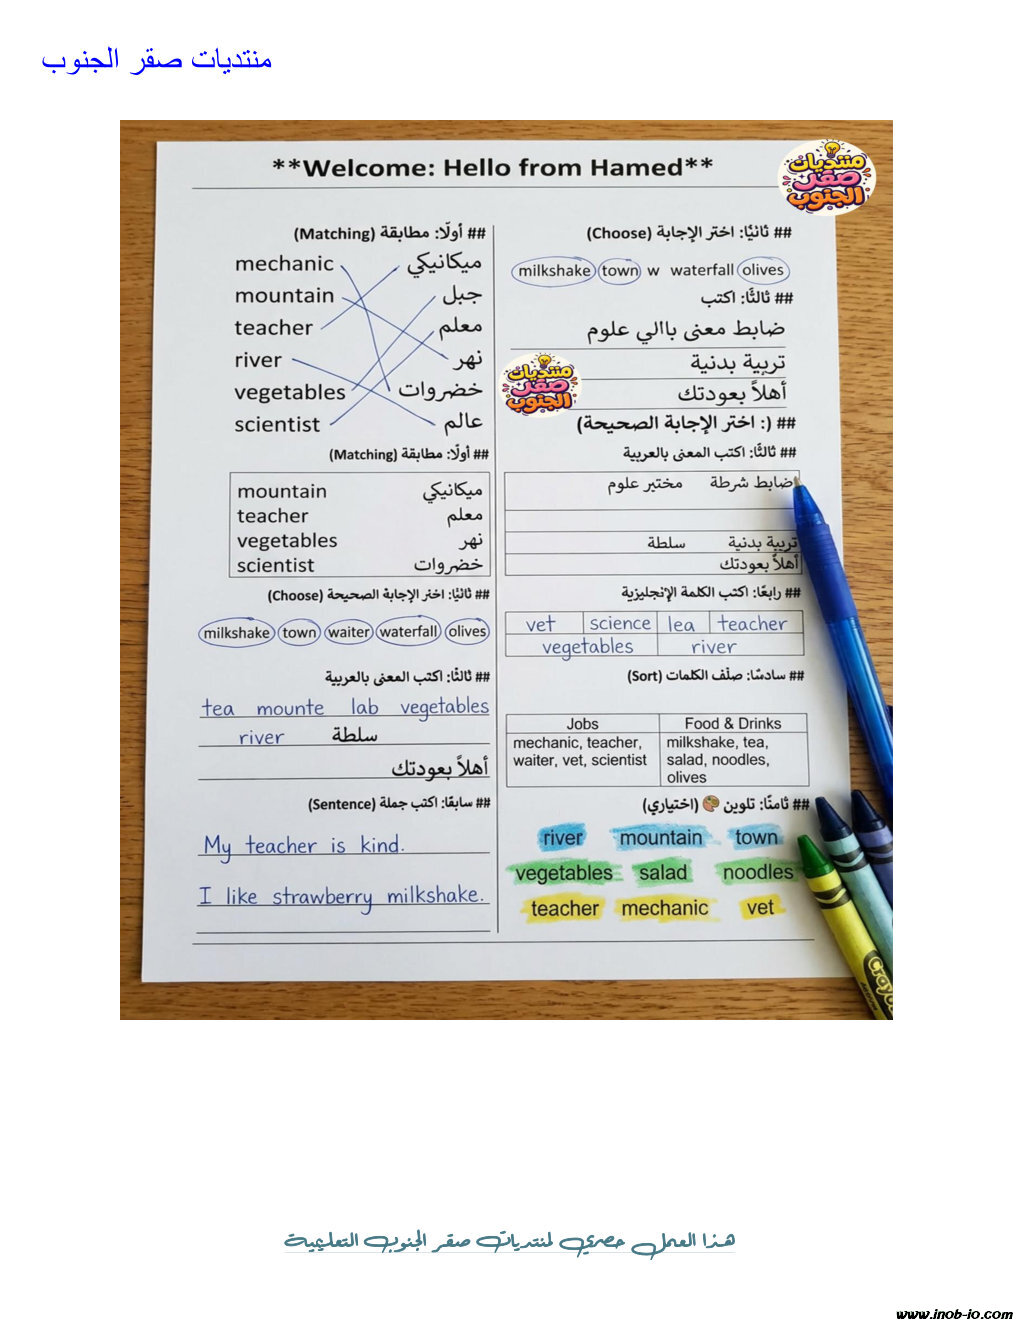 منتديات صقر الجنوب
**Welcome: Hello from Hamed**
منتديات صقر الجنوب
## أولًا: مطابقة (Matching)
mechanic ميكانيكي
mountain جبل
teacher معلم
river نهر
vegetables خضروات
scientist عالم
## أولًا: مطابقة (Matching)
mountain ميكانيكي
teacher معلم
vegetables نهر
scientist خضروات
## ثانيًا: اختر الإجابة الصحيحة (Choose)
milkshake town waiter waterfall olives
## ثالثًا: اكتب المعنى بالعربية
tea mounte lab vegetables
river سلطة
أهلاً بعودتك
## سابقًا: اكتب جملة (Sentence)
My teacher is kind.
I like strawberry milkshake.
## ثانيًا: اختر الإجابة (Choose)
milkshake town w waterfall olives
## ثالثًا: اكتب
ضابط معنى باالي علوم
تربية بدنية
أهلاً بعودتك
منتديات صقر الجنوب
## (: اختر الإجابة الصحيحة)
## ثالثًا: اكتب المعنى بالعربية
ضابط شرطة مختبر علوم
تربية بدنية سلطة
أهلاً بعودتك
## رابعًا: اكتب الكلمة الإنجليزية
vet science lea teacher
vegetables river
## سادسًا: صنّف الكلمات (Sort)
Jobs Food & Drinks
mechanic, teacher, milkshake, tea,
waiter, vet, scientist salad, noodles,
olives
## ثامنًا: تلوين 🎨 (اختياري)
river mountain town
vegetables salad noodles
teacher mechanic vet
Crayo
هذا العمل حصري لمنتديات صقر الجنوب التعليمية
www.jnob-jo.com